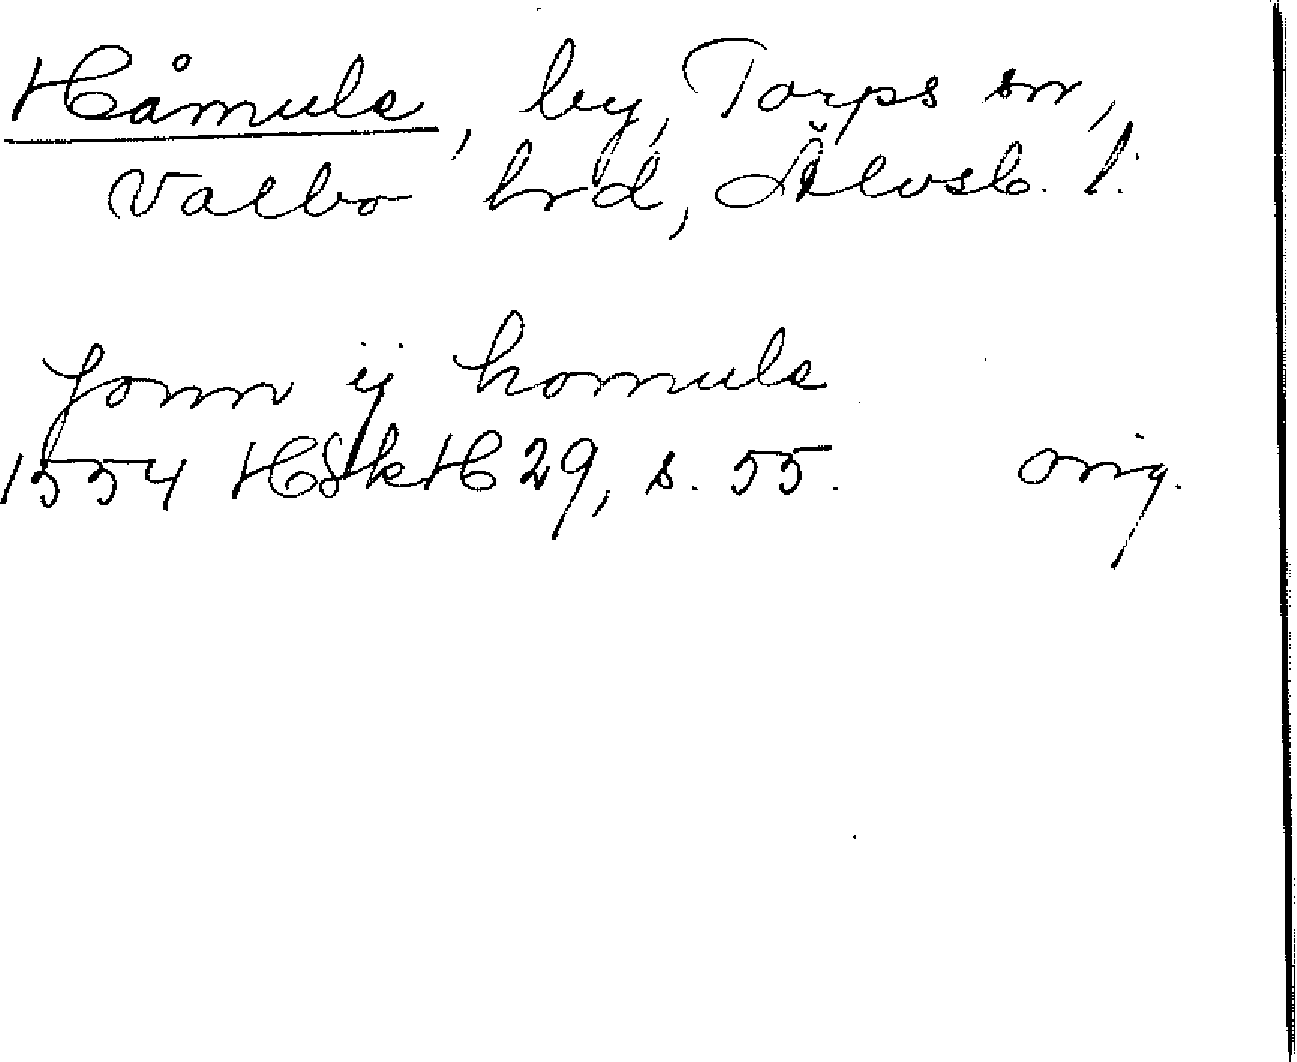 Håmule, by, Torps sn,
Valbo hrd, Älvsb. l.
Jonn ij homule
1554 HSkH 29, s. 55. orig.